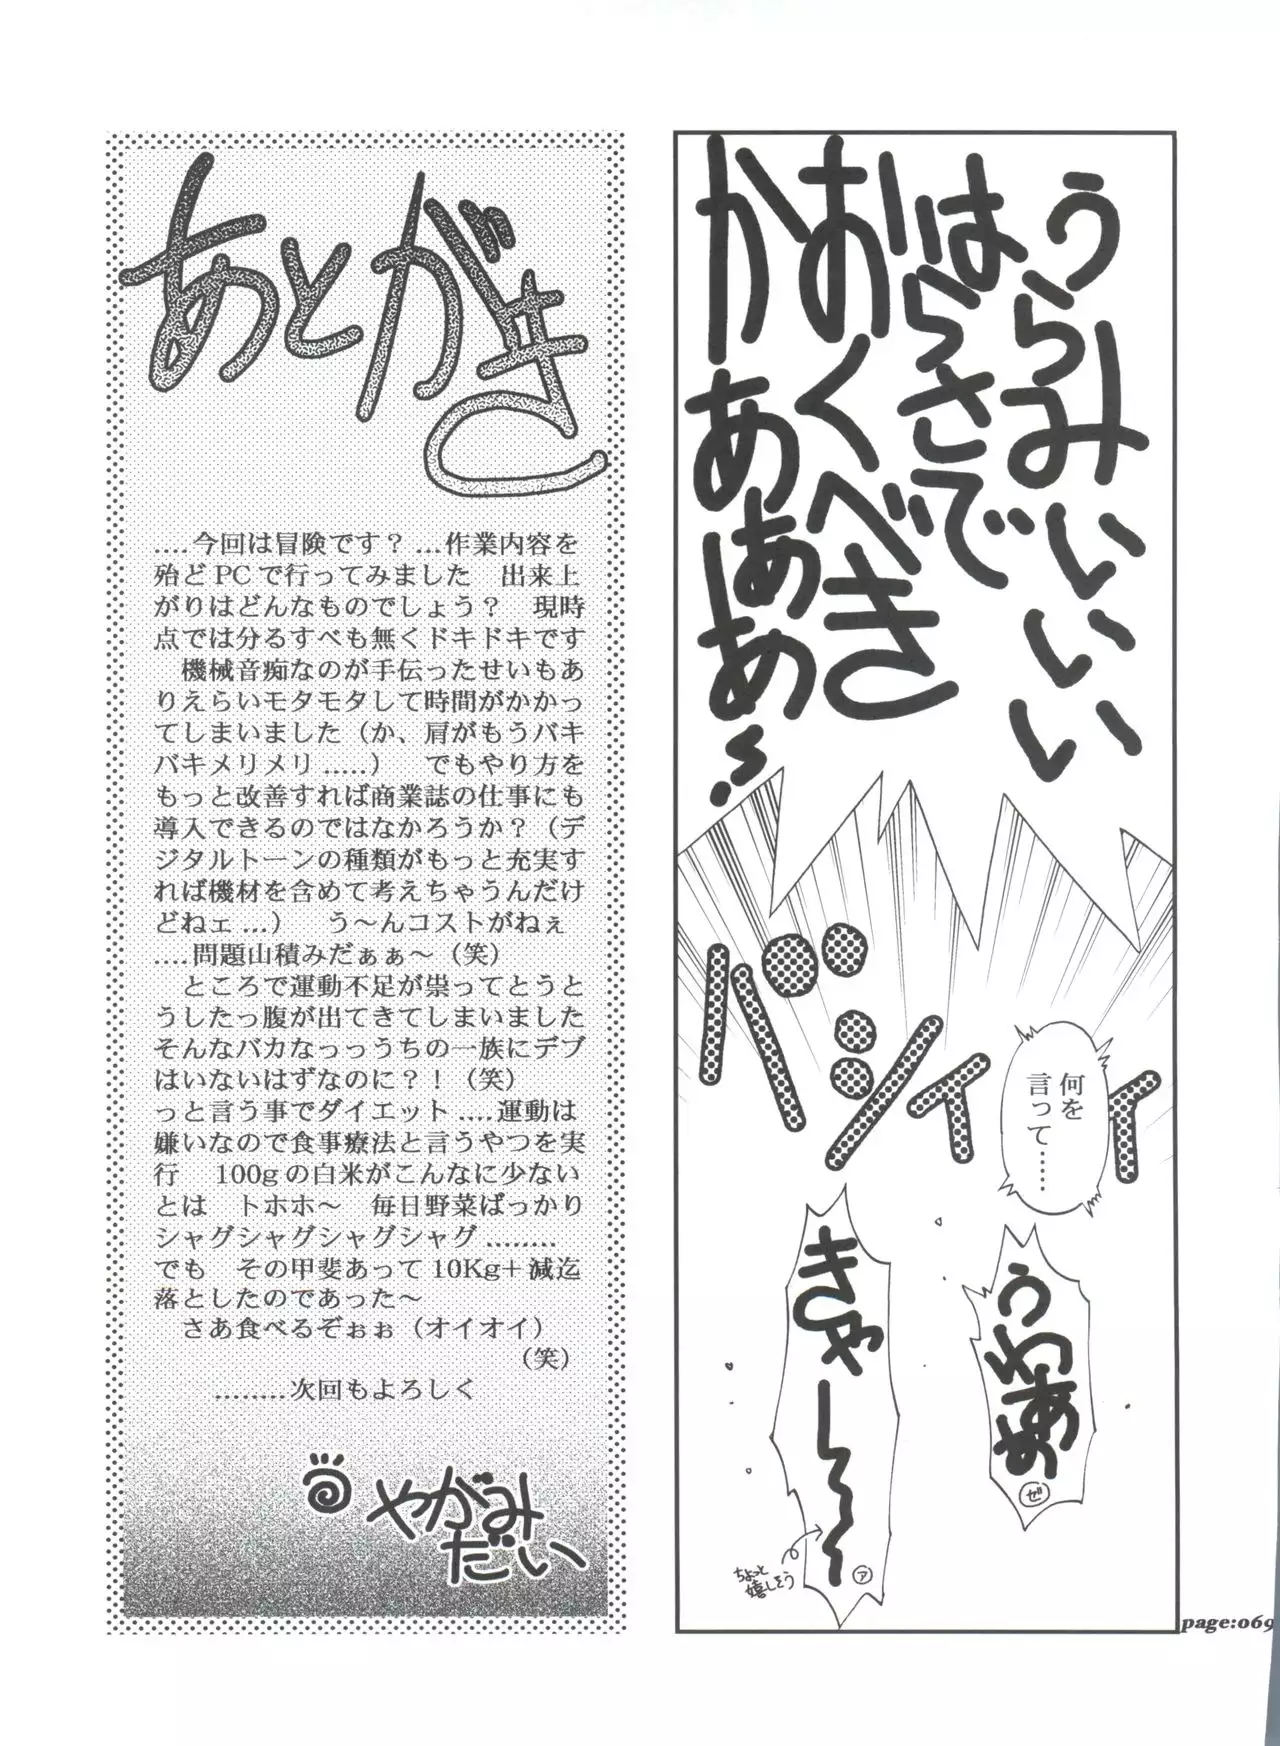 うらみいいい
はらさで
おくべき
かあああ〜.
何を
言って……
バシィィィ
うわああ
ゼ
きゃー〜〜
ア
ちょっと
嬉しそう
page:069
あとがき
....今回は冒険です？ ...作業内容を
殆どPCで行ってみました　出来上
がりはどんなものでしょう？　現時
点では分るすべも無くドキドキです
　機械音痴なのが手伝ったせいもあ
りえらいモタモタして時間がかかっ
てしまいました（か、肩がもうバキ
バキメリメリ.....）　でもやり方を
もっと改善すれば商業誌の仕事にも
導入できるのではなかろうか？（デ
ジタルトーンの種類がもっと充実す
れば機材を含めて考えちゃうんだけ
どねェ...）　う〜んコストがねぇ
....問題山積みだぁぁ〜（笑）
　ところで運動不足が祟ってとうと
うしたっ腹が出てきてしまいました
そんなバカなっっうちの一族にデブ
はいないはずなのに？！（笑）
っと言う事でダイエット....運動は
嫌いなので食事療法と言うやつを実
行　100gの白米がこんなに少ない
とは　トホホ〜　毎日野菜ばっかり
シャグシャグシャグシャグ.........
でも　その甲斐あって10Kg+減迄
落としたのであった〜
　さあ食べるぞぉぉ（オイオイ）
（笑）
.........次回もよろしく
やがみ
だい